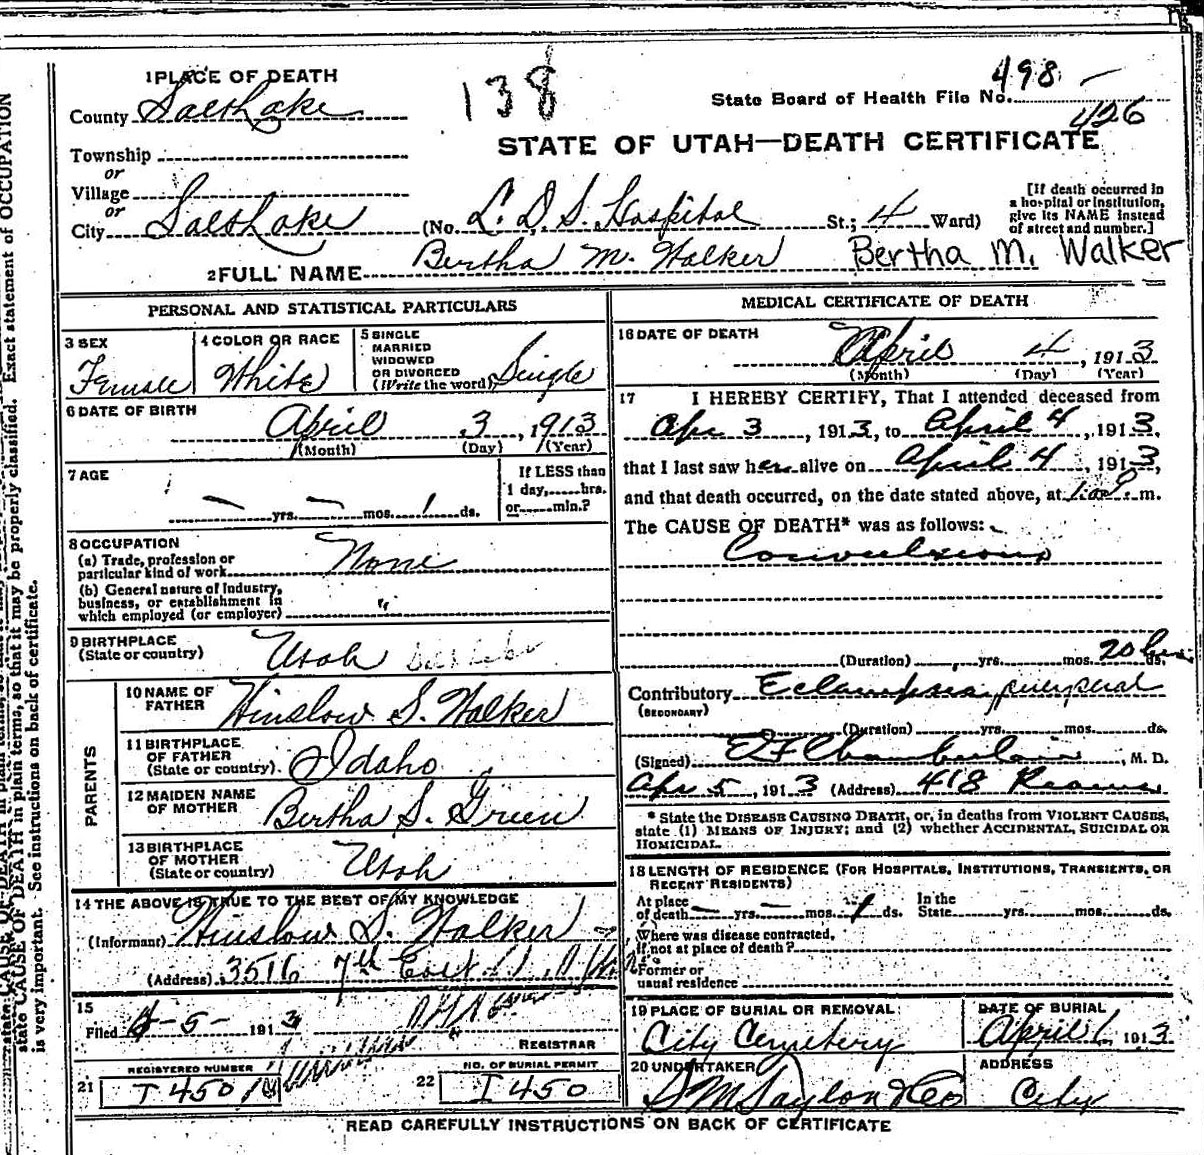 1 PLACE OF DEATH
138
498
State Board of Health File No.
426
County Salt Lake
STATE OF UTAH—DEATH CERTIFICATE
Township
or
Village
or
City Salt Lake (No. L. D. S. Hospital St.; 4 Ward)
[If death occurred in
a hospital or institution,
give its NAME instead
of street and number.]
2 FULL NAME Bertha M. Walker Bertha M. Walker
PERSONAL AND STATISTICAL PARTICULARS
3 SEX
Female
4 COLOR OR RACE
White
5 SINGLE
MARRIED
WIDOWED
OR DIVORCED
(Write the word) Single
6 DATE OF BIRTH
April 3, 1913
(Month) (Day) (Year)
7 AGE
— yrs. — mos. 1 ds.
If LESS than
1 day, hrs.
or min.?
8 OCCUPATION
(a) Trade, profession or
particular kind of work None
(b) General nature of industry,
business, or establishment in
which employed (or employer) "
9 BIRTHPLACE
(State or country) Utah
PARENTS
10 NAME OF
FATHER Winslow S. Walker
11 BIRTHPLACE
OF FATHER
(State or country) Idaho
12 MAIDEN NAME
OF MOTHER Bertha S. Green
13 BIRTHPLACE
OF MOTHER
(State or country) Utah
14 THE ABOVE IS TRUE TO THE BEST OF MY KNOWLEDGE
(Informant) Winslow S. Walker
(Address) 3516 7th East
15
Filed 4-5- 1913
REGISTRAR
REGISTERED NUMBER
21 I 450
NO. OF BURIAL PERMIT
22 I 450
MEDICAL CERTIFICATE OF DEATH
16 DATE OF DEATH
April 4, 1913
(Month) (Day) (Year)
17 I HEREBY CERTIFY, That I attended deceased from
Apr 3, 1913, to April 4, 1913,
that I last saw her alive on April 4, 1913,
and that death occurred, on the date stated above, at m.
The CAUSE OF DEATH* was as follows:
Convulsions
(Duration) yrs. mos. 20 hrs ds.
Contributory Eclampsia, puerperal
(SECONDARY)
(Duration) yrs. mos. ds.
(Signed) Chamberlain, M. D.
Apr 5, 1913 (Address) 418
* State the DISEASE CAUSING DEATH, or, in deaths from VIOLENT CAUSES,
state (1) MEANS OF INJURY; and (2) whether ACCIDENTAL, SUICIDAL OR
HOMICIDAL.
18 LENGTH OF RESIDENCE (FOR HOSPITALS, INSTITUTIONS, TRANSIENTS, OR
RECENT RESIDENTS)
At place
of death — yrs. — mos. 1 ds.
In the
State yrs. mos. ds.
Where was disease contracted,
if not at place of death?
Former or
usual residence
19 PLACE OF BURIAL OR REMOVAL
City Cemetery
DATE OF BURIAL
April 6 1913
20 UNDERTAKER
S M Taylor & Co
ADDRESS
City
READ CAREFULLY INSTRUCTIONS ON BACK OF CERTIFICATE
state CAUSE OF DEATH in plain terms, so that it may be properly classified. Exact statement of OCCUPATION
is very important. See instructions on back of certificate.